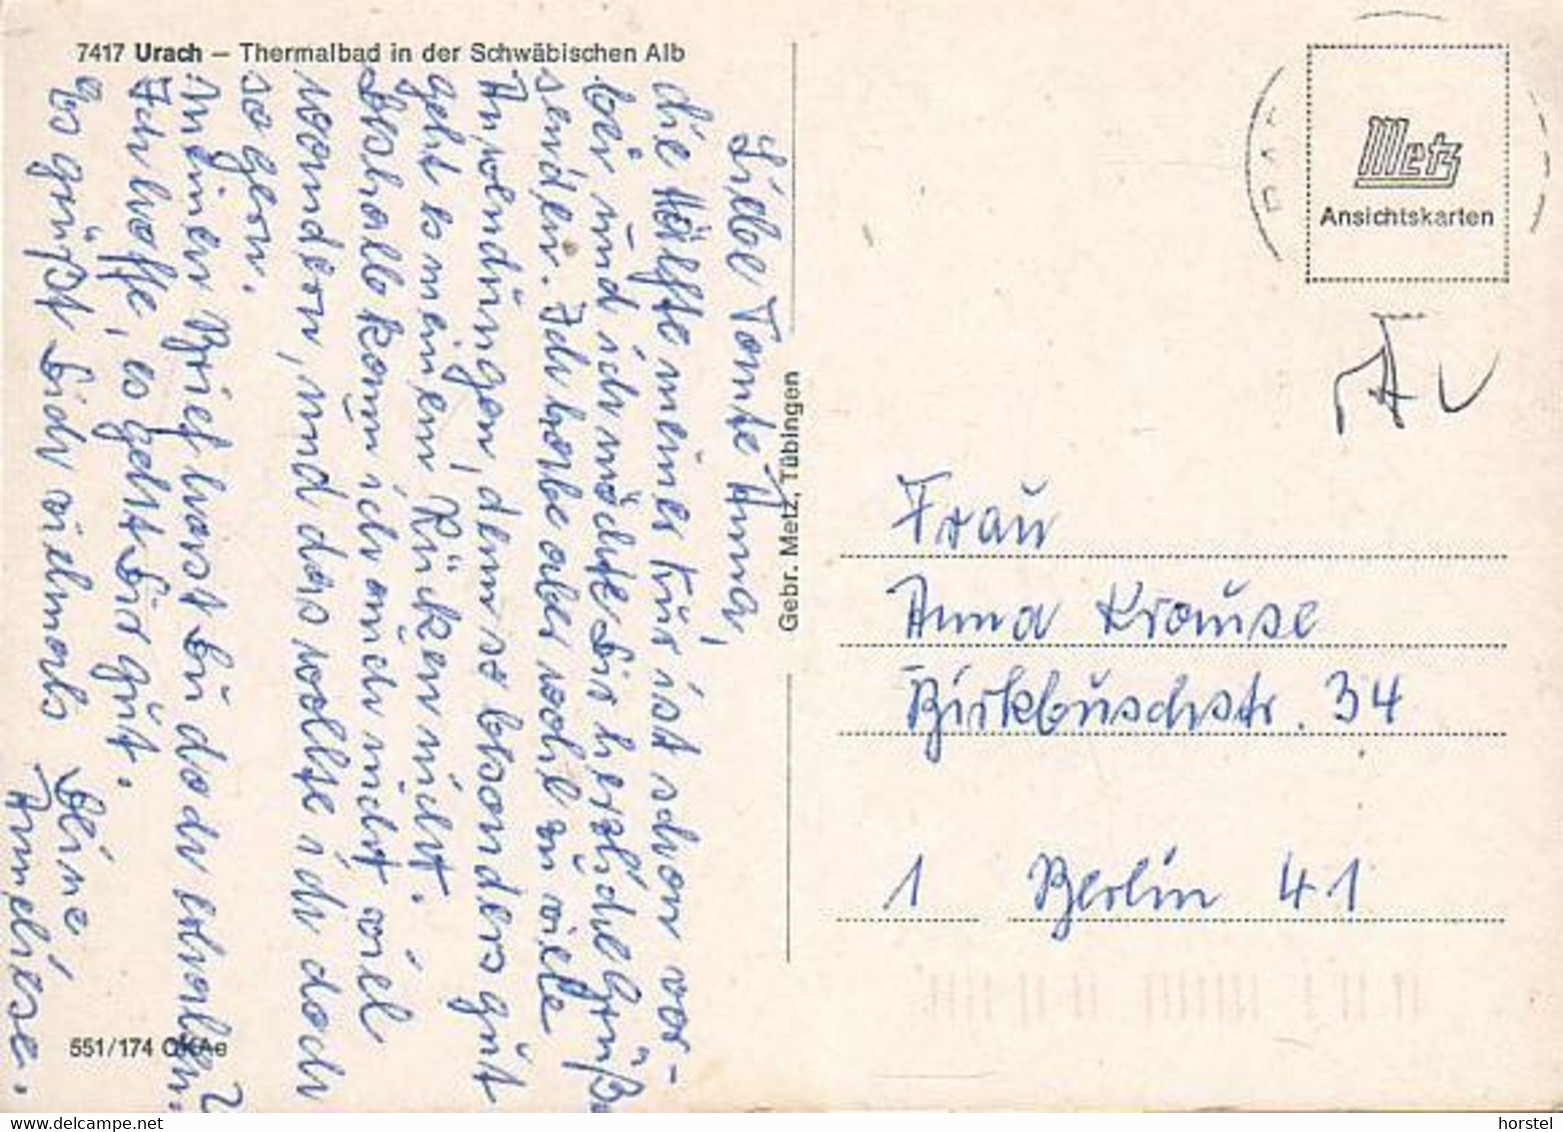 7417 Urach — Thermalbad in der Schwäbischen Alb
Liebe Tante Anna,
die Hälfte meiner Kur ist schon vor-
bei und ich möchte Dir herzliche Grüße
senden. Ich habe aber wohl zu viele
Anwendungen, denn so besonders gut
geht es meinem Rücken nicht.
Deshalb kann ich auch nicht viel
wandern, und das wollte ich doch
so gern.
Meinen Brief hast Du doch erhalten?
Ich hoffe, es geht Dir gut.
Es grüßt Dich vielmals Deine
Anneliese.
551/174 CKAe
Gebr. Metz, Tübingen
Metz
Ansichtskarten
Frau
Anna Krause
Birkbuschstr. 34
1 Berlin 41
horstel